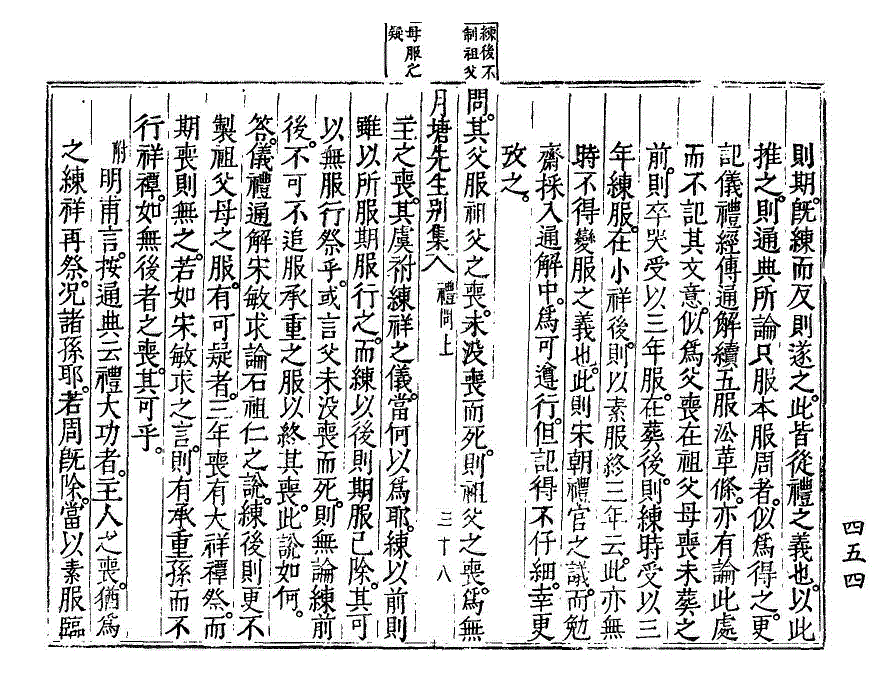 練後不
制祖父
母服之
疑
則期。旣練而反則遂之。此皆從禮之義也。以此
推之。則通典所論只服本服周者。似爲得之。更
記儀禮經傳通解續五服沿革條。亦有論此處
而不記其文意。似爲父喪在祖父母喪未葬之
前。則卒哭受以三年服。在葬後。則練時受以三
年練服。在小祥後。則以素服終三年云。此亦無
時不得變服之義也。此則宋朝禮官之議。而勉
齋採入通解中。爲可遵行。但記得不仔細。幸更
攷之。
問。其父服祖父之喪。未沒喪而死。則祖父之喪。爲無
月塘先生別集八 禮問上 三十八
主之喪。其虞祔練祥之儀。當何以爲耶。練以前則
雖以所服期服行之。而練以後則期服已除。其可
以無服行祭乎。或言父未沒喪而死。則無論練前
後。不可不追服承重之服以終其喪。此說如何。
答。儀禮通解宋敏求論石祖仁之說。練後則更不
製祖父母之服。有可疑者。三年喪有大祥禫祭。而
期喪則無之。若如宋敏求之言。則有承重孫而不
行祥禫。如無後者之喪。其可乎。
附明甫言。按通典云禮大功者。主人之喪。猶爲
之練祥再祭。况諸孫耶。若周旣除。當以素服臨
四五四